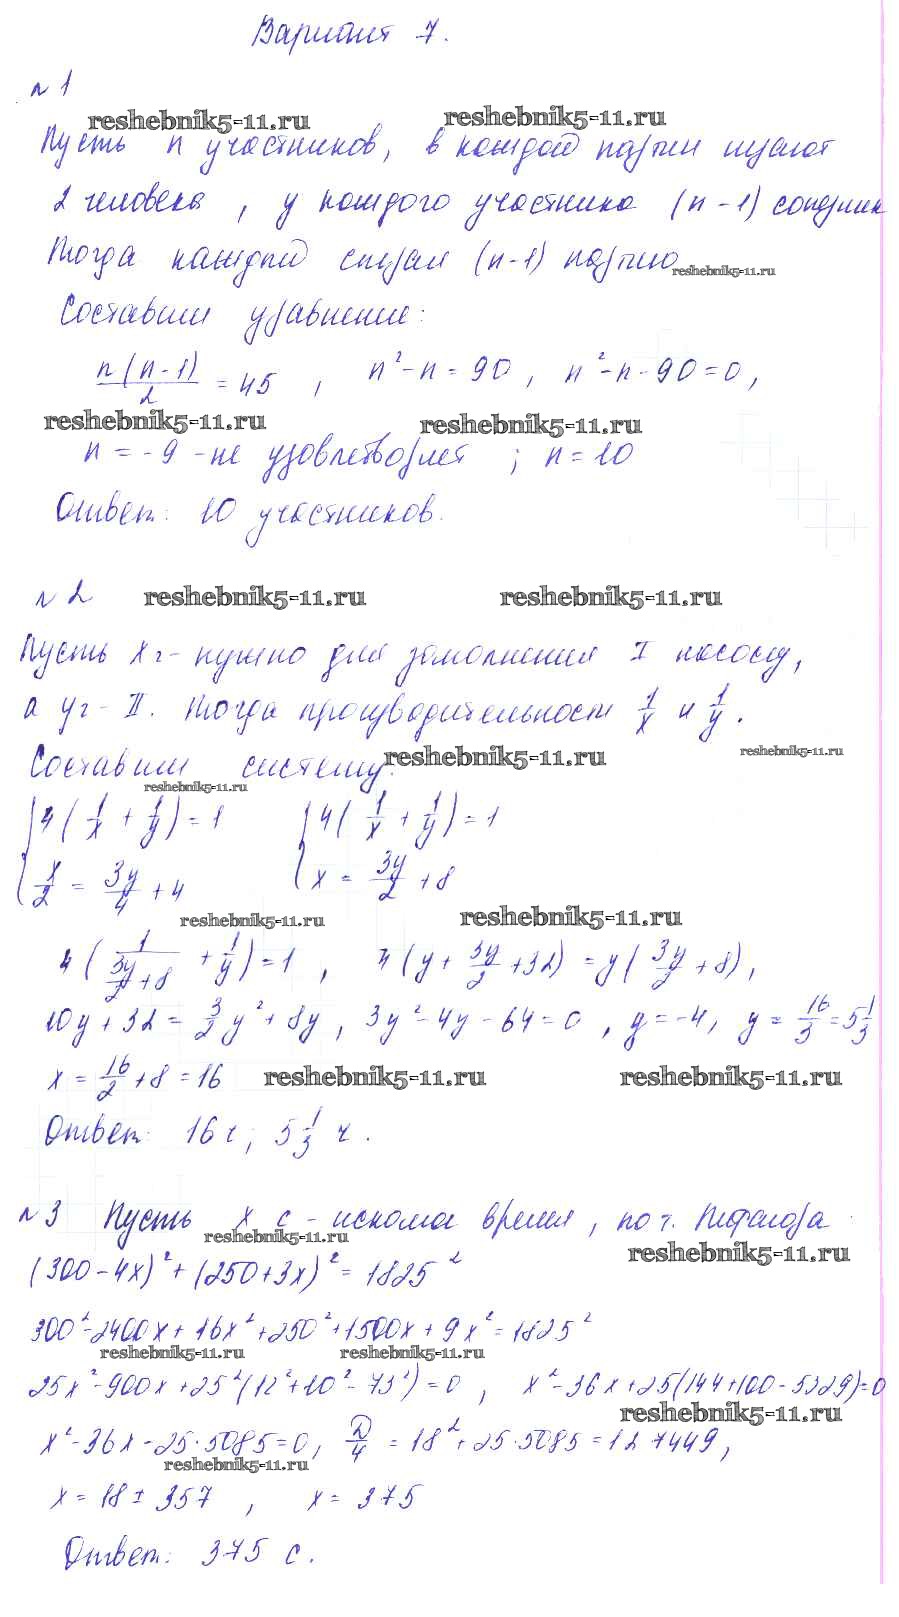 Вариант 7.
№ 1
reshebnik5-11.ru reshebnik5-11.ru
Пусть n участников, в каждой партии играют
2 человека, у каждого участника (n-1) соперник
Тогда каждый сыграл (n-1) партию
reshebnik5-11.ru
Составим уравнение:
n(n-1)/2 = 45, n²-n=90, n²-n-90=0,
reshebnik5-11.ru reshebnik5-11.ru
n=-9 - не удовлетворяет; n=10
Ответ: 10 участников.
№ 2 reshebnik5-11.ru reshebnik5-11.ru
Пусть x ч - нужно для заполнения I насосу,
а y ч - II. Тогда производительности 1/x и 1/y.
Составим систему: reshebnik5-11.ru reshebnik5-11.ru
reshebnik5-11.ru
{4(1/x + 1/y)=1 {4(1/x + 1/y)=1
x/2 = 3y/4 + 4 x = 3y/2 + 8
reshebnik5-11.ru reshebnik5-11.ru
4(1/(3y/2+8) + 1/y)=1, 4(y + 3y/2 + 32) = y(3y/2 + 8),
10y+32 = 3/2 y² + 8y, 3y²-4y-64=0, y=-4, y = 16/3 = 5 1/3
x = 16/2 + 8 = 16 reshebnik5-11.ru reshebnik5-11.ru
Ответ: 16 ч; 5 1/3 ч.
№ 3 Пусть x с - искомое время, по т. Пифагора
reshebnik5-11.ru reshebnik5-11.ru
(300-4x)²+(250+3x)²=1825²
300²-2400x+16x²+250²+1500x+9x²=1825²
reshebnik5-11.ru reshebnik5-11.ru
25x²-900x+25²(12²+10²-73²)=0, x²-36x+25(144+100-5329)=0
reshebnik5-11.ru
x²-36x-25·5085=0, D/4 = 18²+25·5085=127449,
reshebnik5-11.ru
x=18±357, x=375
Ответ: 375 с.